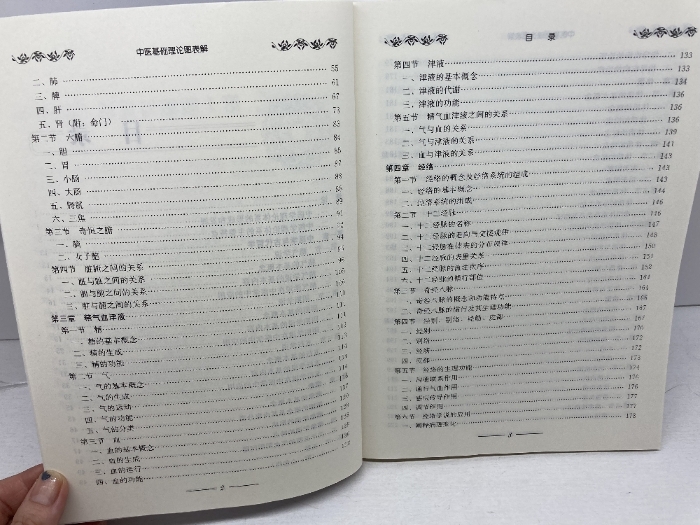 中医基础理论图表解
二、肺 55
三、脾 61
四、肝 67
五、肾（附：命门） 73
第二节 六腑 83
一、胆 84
二、胃
三、小肠
四、大肠 88
五、膀胱 89
六、三焦
第三节 奇恒之腑 91
一、脑
二、女子胞
第四节 脏腑之间的关系
一、脏与脏之间的关系
二、腑与腑之间的关系
三、脏与腑之间的关系
第三章 精气血津液
第一节 精
一、精的基本概念
二、精的生成
三、精的功能
第二节 气
一、气的基本概念
二、气的生成
三、气的运动
四、气的功能
五、气的分类
第三节 血
一、血的基本概念
二、血的生成
三、血的运行
四、血的功能
2
目 录
第四节 津液 133
一、津液的基本概念 133
二、津液的代谢 134
三、津液的功能 136
第五节 精气血津液之间的关系 136
一、气与血的关系 136
二、气与津液的关系 139
三、血与津液的关系 141
第四章 经络 143
第一节 经络的概念及经络系统的组成 143
一、经络的基本概念 143
二、经络系统的组成 144
第二节 十二经脉 146
一、十二经脉的名称 147
二、十二经脉的走向与交接规律
三、十二经脉在体表的分布规律 150
四、十二经脉的表里关系 152
五、十二经脉的流注次序
六、十二经脉的循行部位
第三节 奇经八脉
一、奇经八脉的概念和功能特点 164
二、奇经八脉的循行及其生理功能
第四节 经别、别络、经筋、皮部
一、经别
二、别络 170
三、经筋 172
四、皮部
第五节 经络的生理功能 174
一、沟通联系作用 175
二、运行气血作用 176
三、感应传导作用 177
四、调节作用
第六节 经络学说的应用
3